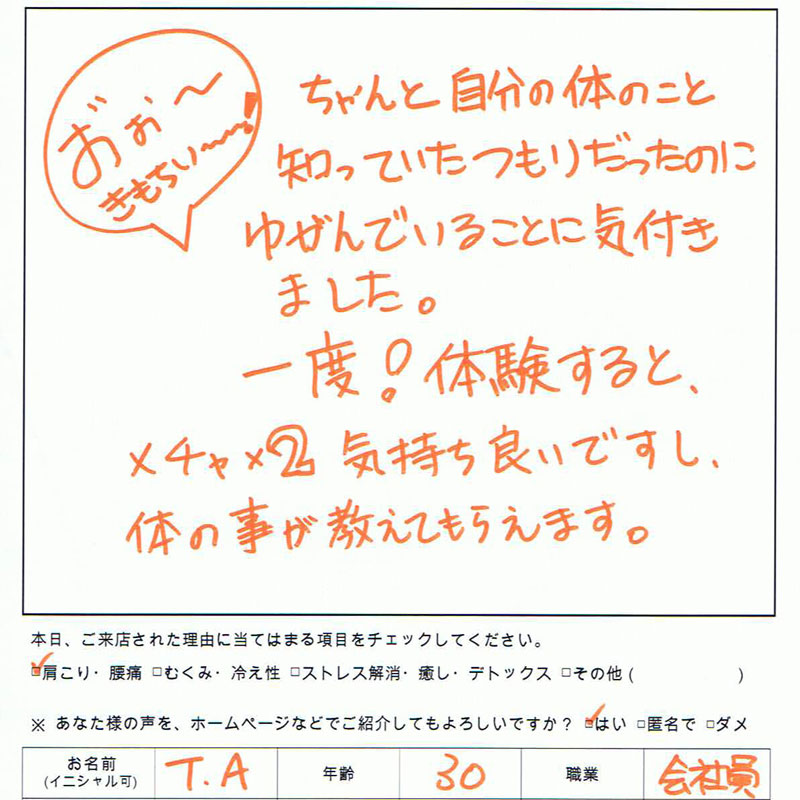 おぉ〜
きもちい〜〜!
ちゃんと自分の体のこと
知っていたつもりだったのに
ゆがんでいることに気付き
ました。
一度!体験すると、
メチャ×2 気持ち良いですし、
体の事が教えてもらえます。
本日、ご来店された理由に当てはまる項目をチェックしてください。
□肩こり・腰痛 □むくみ・冷え性 □ストレス解消・癒し・デトックス □その他 ( )
※ あなた様の声を、ホームページなどでご紹介してもよろしいですか? □はい □匿名で □ダメ
お名前 T.A 年齢 30 職業 会社員
(イニシャル可)